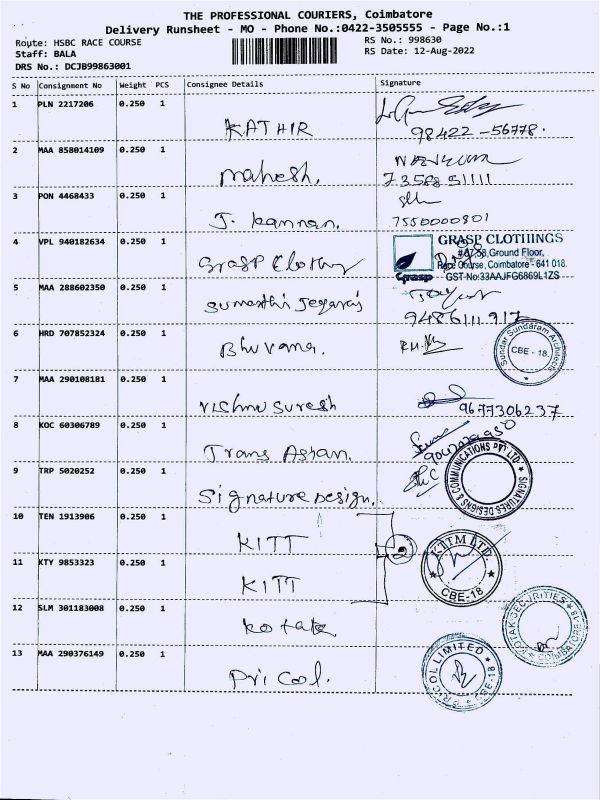 THE PROFESSIONAL COURIERS, Coimbatore
Delivery Runsheet - MO - Phone No.:0422-3505555 - Page No.:1
Route: HSBC RACE COURSE
RS No.: 998630
Staff: BALA
RS Date: 12-Aug-2022
DRS No.: DCJB99863001
S No Consignment No Weight PCS Consignee Details Signature
1 PLN 2217206 0.250 1
KATHIR 98422-56778.
2 MAA 858014109 0.250 1
Mahesh, 7358851111
3 PON 4468433 0.250 1
J. Kannan. 7550000801
4 VPL 940182634 0.250 1
GRASP CLOTHINGS
Ground Floor,
Grasp Clothing Race Course, Coimbatore - 641 018.
Grasp GST No:33AAJFG6869L1ZS
5 MAA 288602350 0.250 1
Sumathi Jegaraj 9486111917
6 HRD 707852324 0.250 1
Bhuvana. Sundar Sundaram Architects CBE - 18.
7 MAA 290108181 0.250 1
Vishnu Suresh 9677306237
8 KOC 60306789 0.250 1
Trans Asian.
9 TRP 5020252 0.250 1
Signature Design. SIGNATURES DESIGNS & COMMUNICATIONS (P) LTD.
10 TEN 1913906 0.250 1
KITT
2
11 KTY 9853323 0.250 1
KITT KITTM LTD. CBE-18
12 SLM 301183008 0.250 1
Kotak KOTAK SECURITIES COIMBATORE-18
13 MAA 290376149 0.250 1
Pricol. PRICOL LIMITED CBE-18